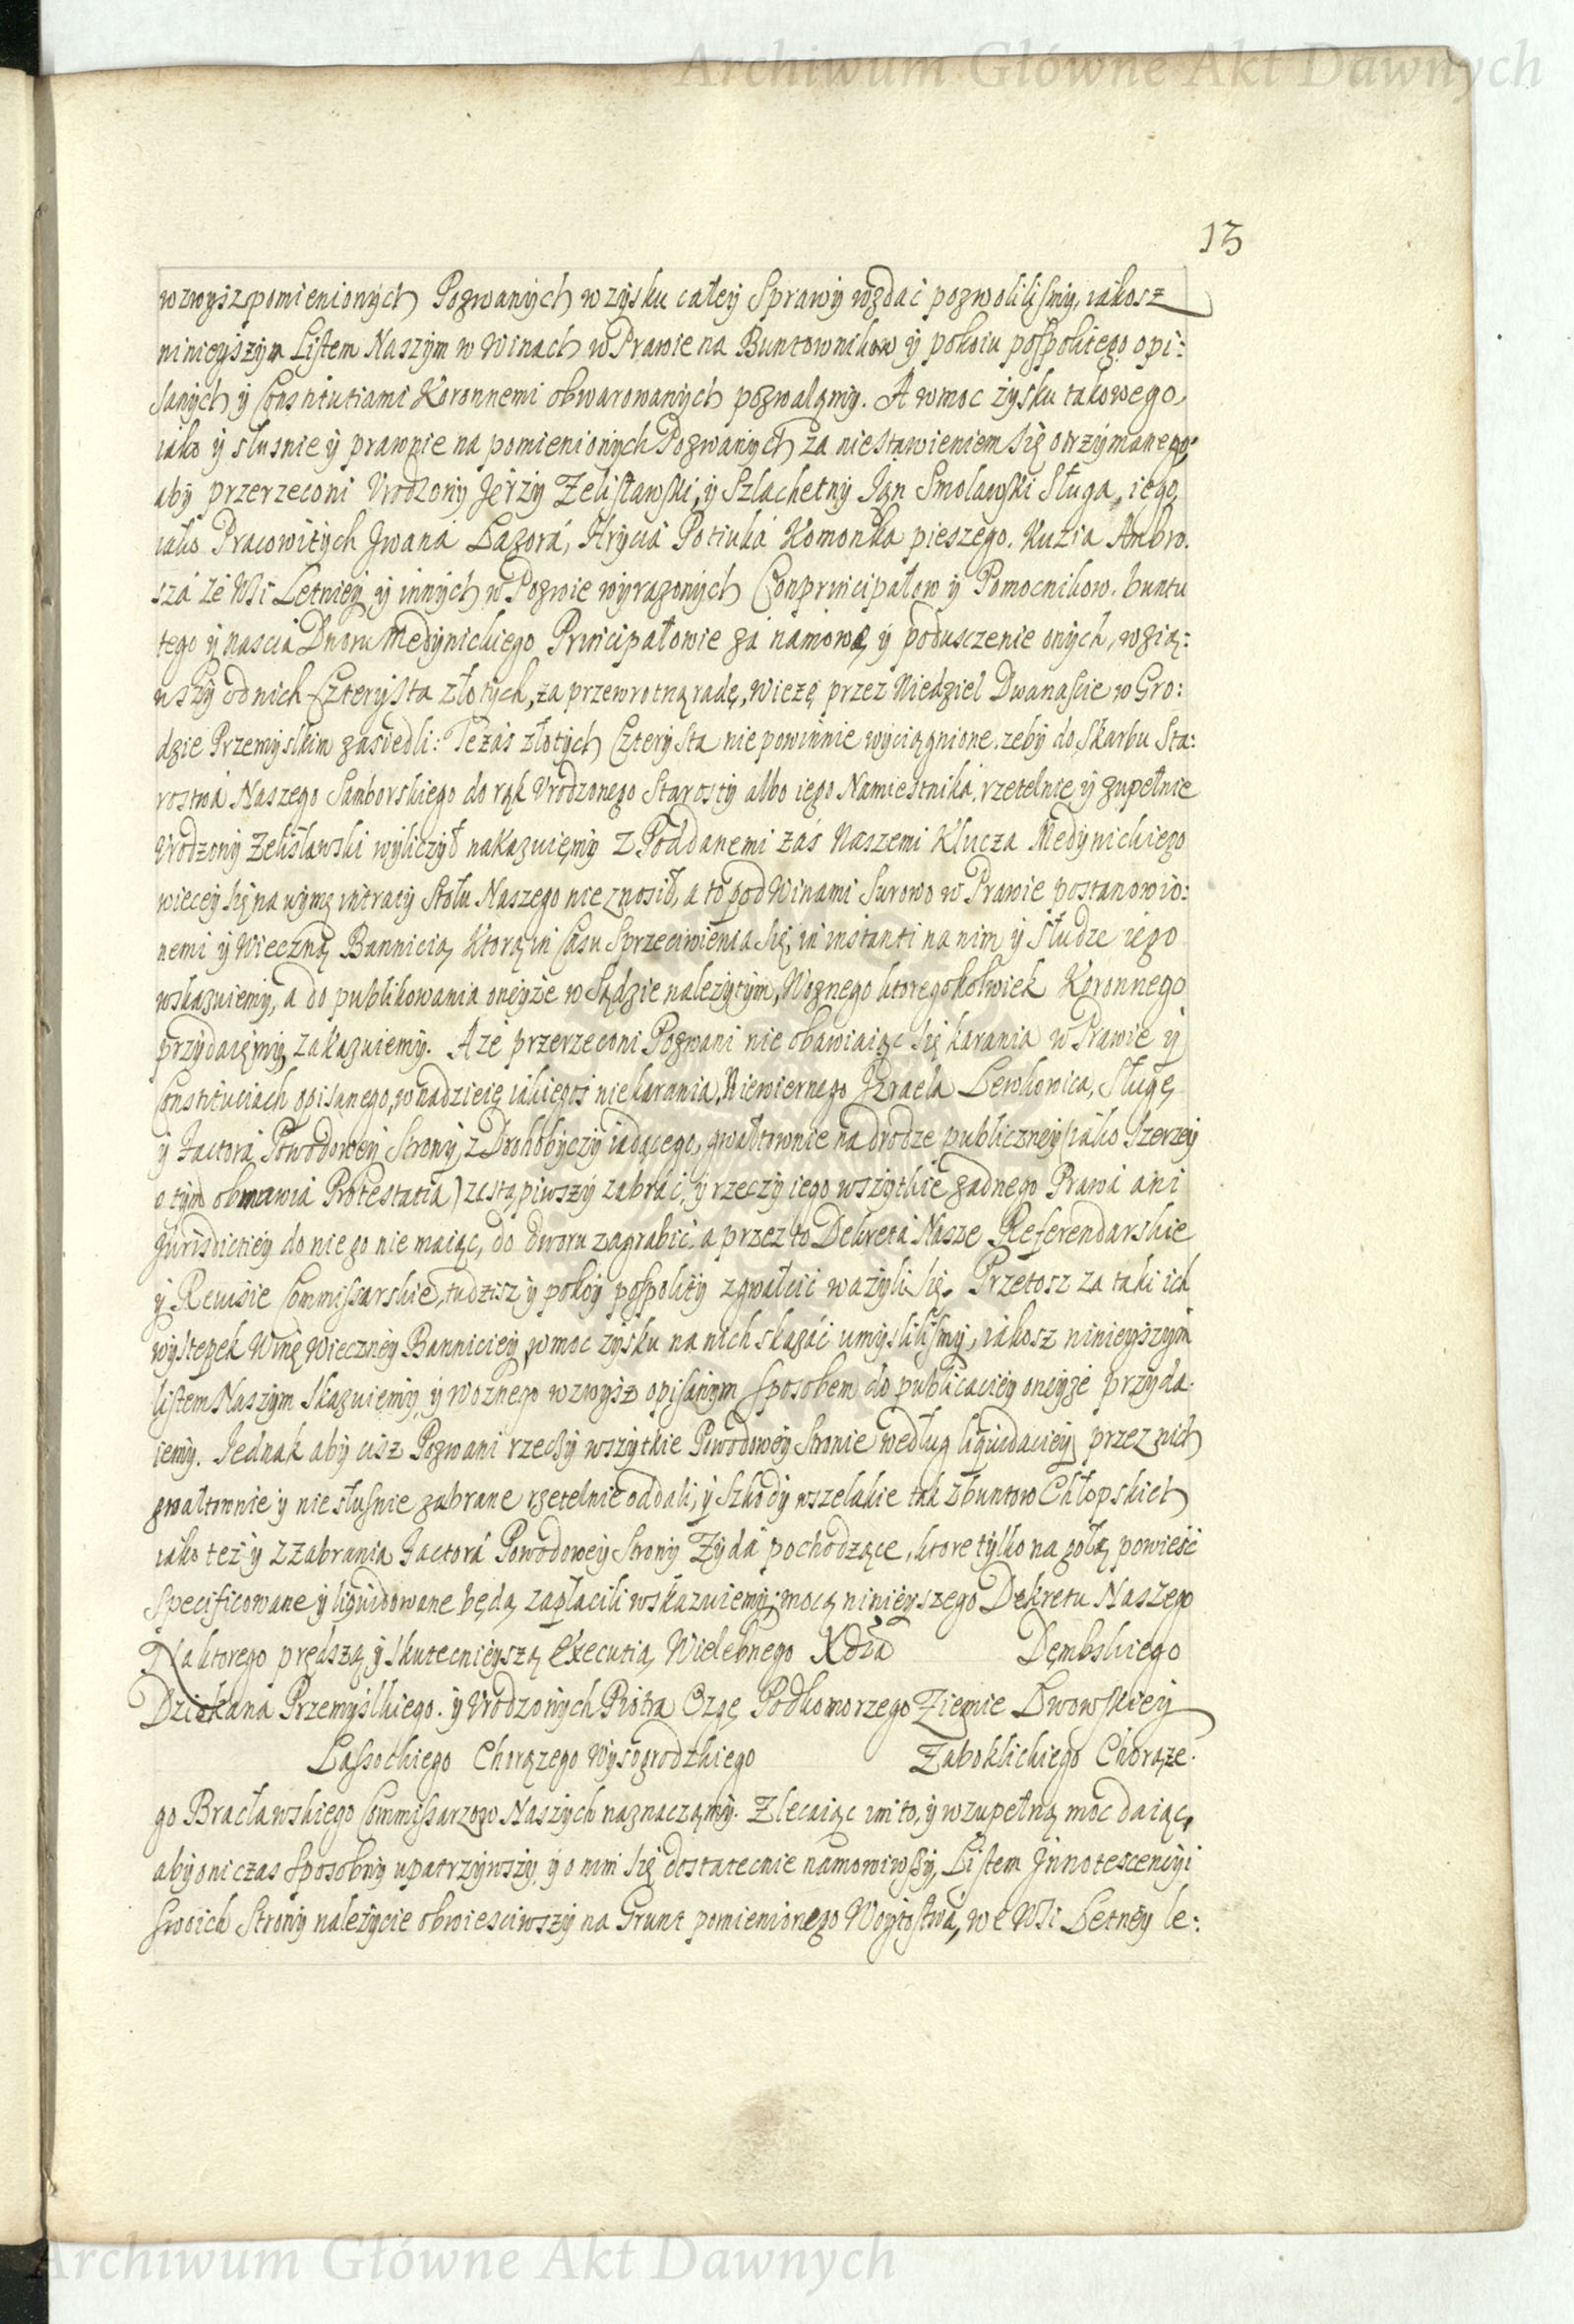 Archiwum Główne Akt Dawnych
13
wzwysz pomienionych Pozwanych w zysku całey Sprawy wzdać pozwolilismy, iakosz
ninieyszym Listem Naszym w Winach w Prawie na Buntownikow y pokoiu pospolitego opi:
sanych y Constitutiami Koronnemi obwarowanych pozwalamy. A w moc zysku takowego,
iako y słusnie y prawnie na pomienionych Pozwanych za niestawieniem się otrzymanego,
aby przerzeconi Vrodzony Jerzy Zelisławski, y Szlachetny Ian Smolawski Sługa, iego
iako Pracowitych Jwana Lazora, Hrycia Potiuka Komonka pieszego. Kuzia Ambro.
sza ze Wsi Letniey y innych w Pozwie wyrazonych Conprincipałow y Pomocnikow. buntu
tego y nascia Dworu Medynickiego Principałowie za namową y poduszczenie onych, wzią:
wszy od nich Czterysta złotych, za przewrotną radę, wiezę przez Niedziel Dwanascie w Gro:
dzie Przemyskim zasiedli: Te zas złotych Czterysta nie powinnie wyciągnione. zeby do Skarbu Sta:
rostwa Naszego Samborskiego do rąk Vrodzonego Starosty albo iego Namiestnika, rzetelnie y zupełnie
Vrodzony Zelisławski wyliczył nakazuiemy Z Poddanemi zas Naszemi Klucza Medynickiego
wiecey się na uymę intraty Stołu Naszego nie znosił, a to pod Winami Surowo w Prawie postanowio:
nemi y Wieczną Bannicią, Ktorą in Casu Sprzeciwienia się, in instanti na nim y Słudze iego
wskazuiemy, a do publikowania oneyże w Sądzie należytym, Woznego ktoregokolwiek Koronnego
przydaiemy, zakazuiemy. A że przerzeconi Pozwani nie obawiaiąc się karania w Prawie y
Constituciach opisanego, w nadzieię iakiegoś niekarania, Niewiernego Jzraela Lewkowica, Sługę,
y Factora Powodowey Strony, z Drohobyczy iadącego, gwałtownie na drodze publiczney (iako Szerzey
o tym obmawia Protestatia) zastąpiwszy zabrać, y rzeczy iego wszytkie zadnego Prawa ani
Jurisdictiey do niego nie maiąc, do dworu zagrabić, a przez to Dekreta Nasze Referendarskie
y Reuisie Commissarskie, tudzisz y pokoy pospolity zgwałcić ważyli się. Przetosz za taki ich
wystepek Winę Wieczney Banniciey w moc zysku na nich skazać umyslilismy, iakosz ninieyszym
listem Naszym Skazuiemy, y woznego wzwysz opisanym sposobem do publicaciey oneyże przyda.
iemy. Jednak aby cisz Pozwani rzeczy wszytkie Powodowey Stronie według liquidaciey przez nich
gwałtownie y nie słusnie zabrane rzetelnie oddali, y Szkody wszelakie tak z buntow Chłopskich
iako też y z zabrania Factora Powodowey Strony Żyda pochodzące, ktore tylko na gołą powieść
Specificowane y liquidowane będą zapłacili wskazuiemy, mocą ninieyszego Dekretu Naszego
Na ktorego prędszą y skutecnieyszą Executią, Wielebnego Xdza Dembskiego
Dziekana Przemyślkiego. y Vrodzonych Piotra Ozgę Podkomorzego Ziemie Lwowskiey
Lassockiego Chorązego Wysogrodzkiego Zaboklickiego Chorąże.
go Bracławskiego Commissarzow Naszych naznaczamy. Zlecaiąc im to, y w zupełną moc daiąc,
aby oni czas sposobny upatrzywszy, y o nim się dostatecnie namowiwszy, Listem Jnnotescencyi
swoich Strony należycie obwiesciwszy na Grunt pomienionego Woytostwa, we Wsi Letney le:
Archiwum Główne Akt Dawnych